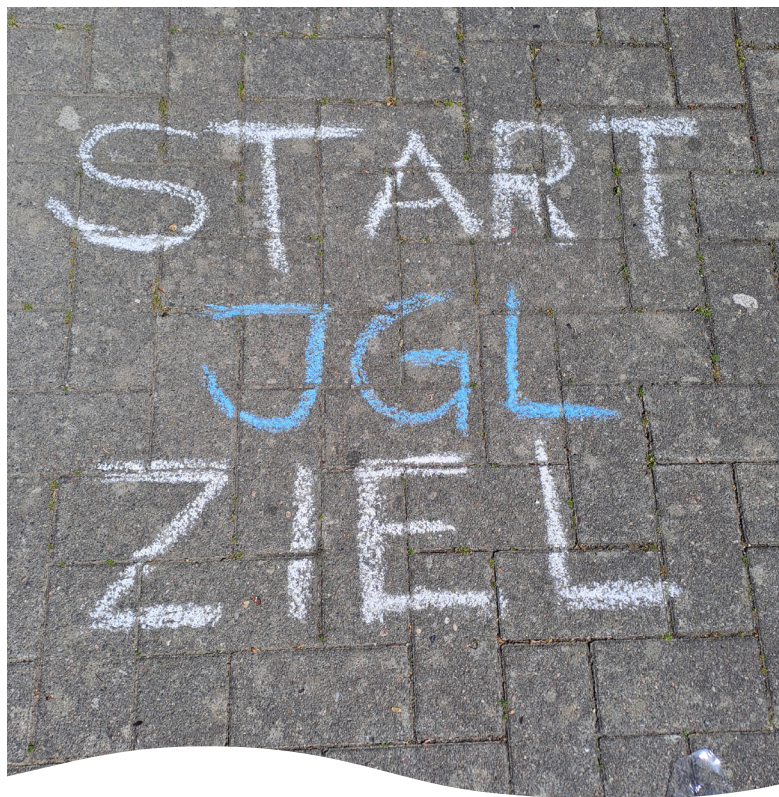 START
JGL
ZIEL